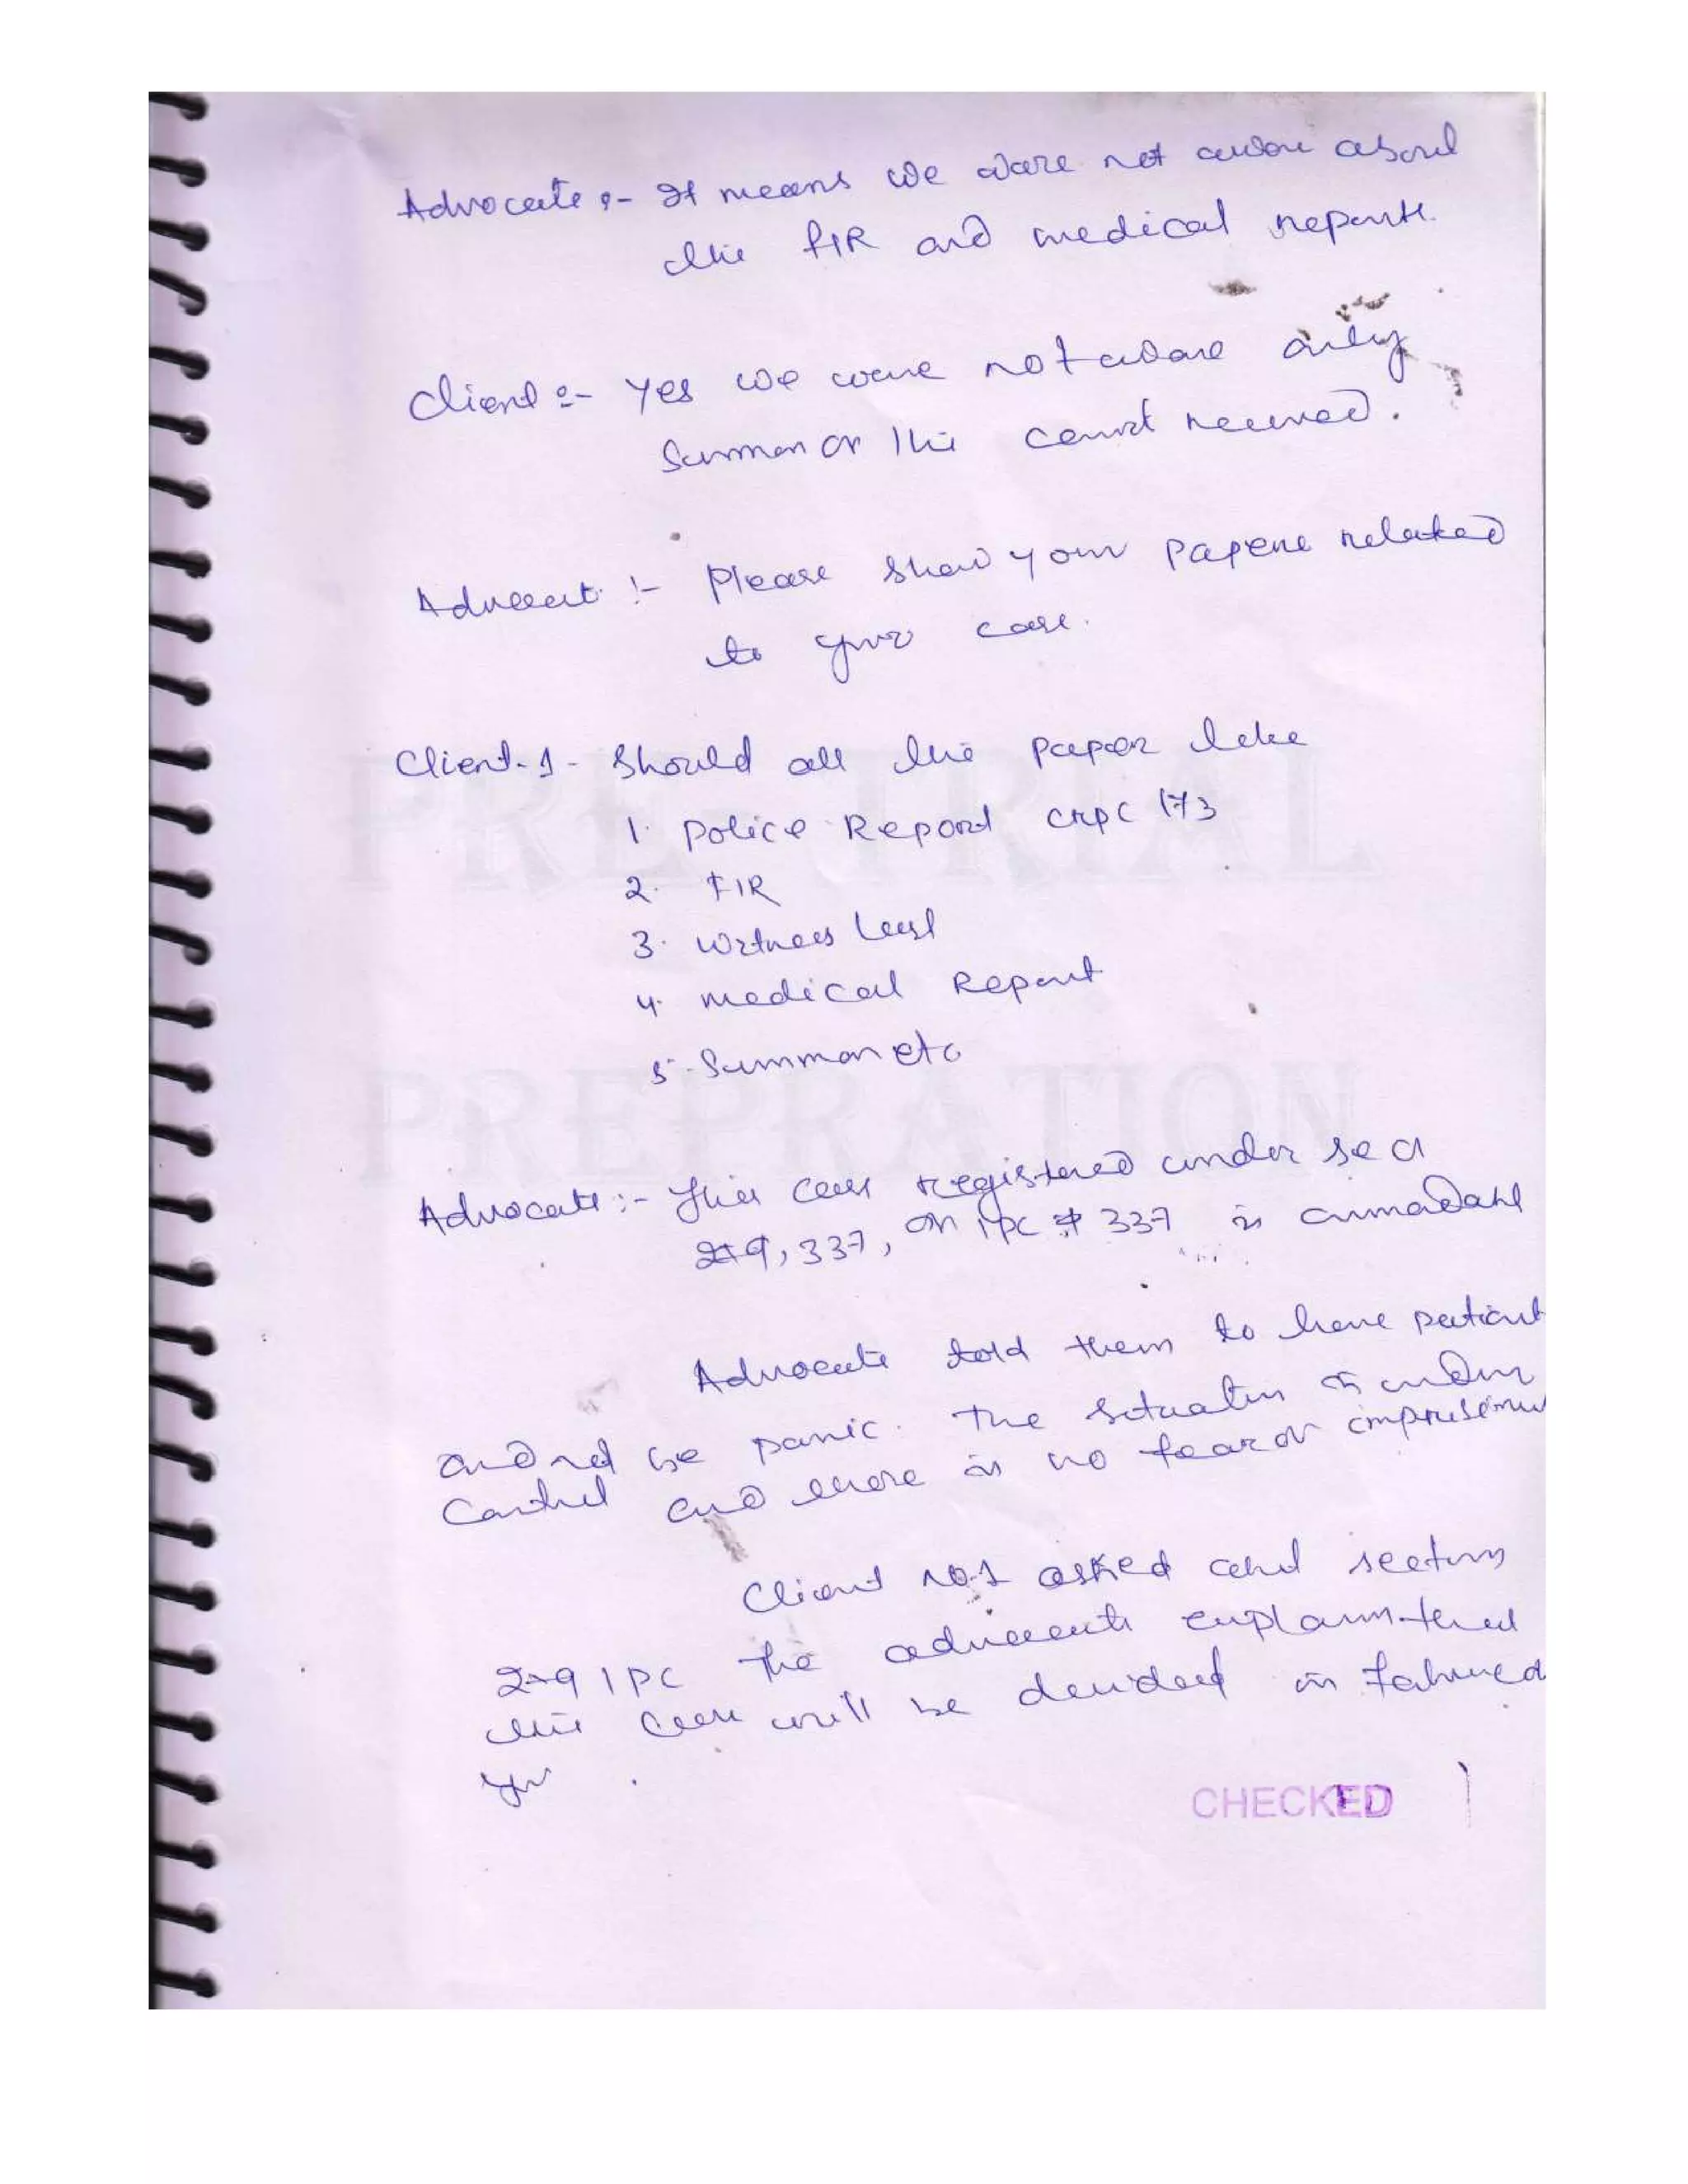 Advocate :- It means we ware not aware about
the FIR and medical report.
Client :- Yes we were not aware only
Summon or the court received.
Advocat :- Please show your papers related
to your case.
Client-1 - Should all the paper like
PRE-TRIAL
1. Police Report CrPC 173
2. FIR
3. Witness List
4. Medical Report
5. Summon etc
PREPRATION
Advocate :- This case registered under Sec
279, 337, on IPC 337 is
Advocate told them to have patient
and not be panic. The situation is under
Control and there is no fear or imprisonment
Client No.1 asked about section
279 IPC the advocate explain that
this case will be decided in
you.
CHECKED